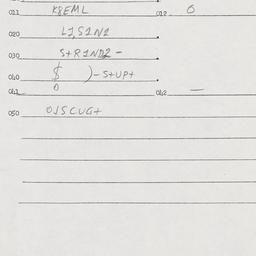 011 K8EML 012 0
020 LISINI
030 STRIND2 -
040 $ )-STUPT
041 0 042 —
050 OJSCUGT